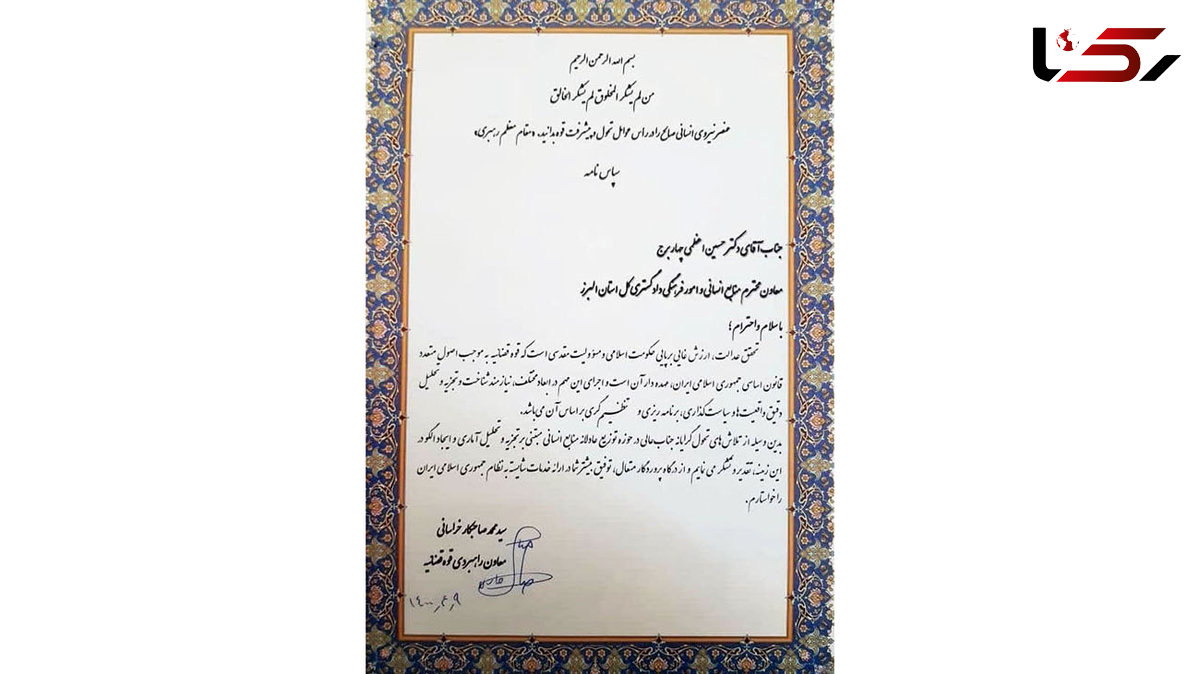 رکنا
بسم الله الرحمن الرحیم
من لم یشکر المخلوق لم یشکر الخالق
عنصر نیروی انسانی صالح را در راس عوامل تحول و پیشرفت قوه بدانید. «مقام معظم رهبری»
سپاس نامه
جناب آقای دکتر حسین اعظمی چهاربرج
معاون محترم منابع انسانی و امور فرهنگی دادگستری کل استان البرز
با سلام و احترام؛
تحقق عدالت، ارزش غایی برپایی حکومت اسلامی و مسؤولیت مقدسی است که قوه قضائیه به موجب اصول متعدد
قانون اساسی جمهوری اسلامی ایران، عهده دار آن است و اجرای این مهم در ابعاد مختلف، نیازمند شناخت و تجزیه و تحلیل
دقیق واقعیت ها و سیاست گذاری، برنامه ریزی و تنظیم گری بر اساس آن می باشد.
بدین وسیله از تلاش های تحول گرایانه جنابعالی در حوزه توزیع عادلانه منابع انسانی مبتنی بر تجزیه و تحلیل آماری و ایجاد الگو در
این زمینه، تقدیر و تشکر می نمایم و از درگاه پروردگار متعال، توفیق بیشتر شما در ارائه خدمات شایسته به نظام جمهوری اسلامی ایران
را خواستارم.
سید محمد صاحبکار خراسانی
معاون راهبردی قوه قضائیه
۱۴۰۰,۴,۹